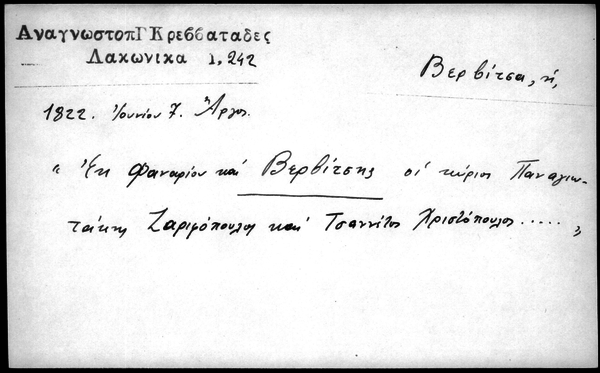 ΑναγνωστοπΓ Κρεββαταδες
Λακωνικα 1,242
Βερβίτσα, ἡ,
1822. Ἰουνίου 7. Ἄργος.
"Ἐκ Φαναρίου καὶ Βερβίτσης οἱ κύριοι Παναγιω-
τάκης Ζαριφόπουλος καὶ Τσαννέτος Χριστόπουλος ..... "